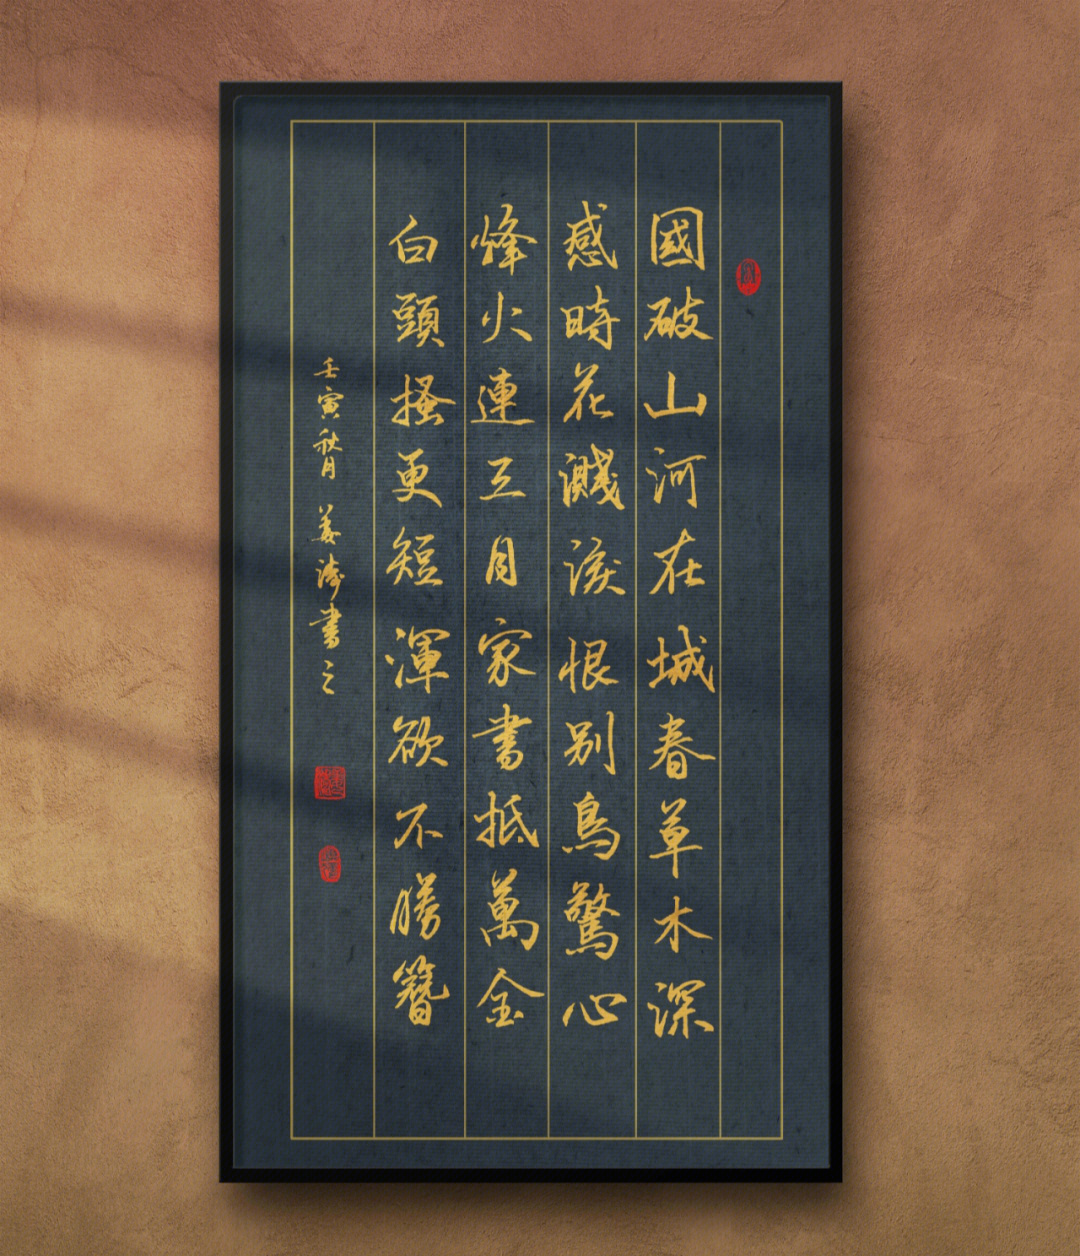 國破山河在城春草木深
感時花濺淚恨别鳥驚心
烽火連三月家書抵萬金
白頭搔更短渾欲不勝簪
壬寅秋月 姜濤书之